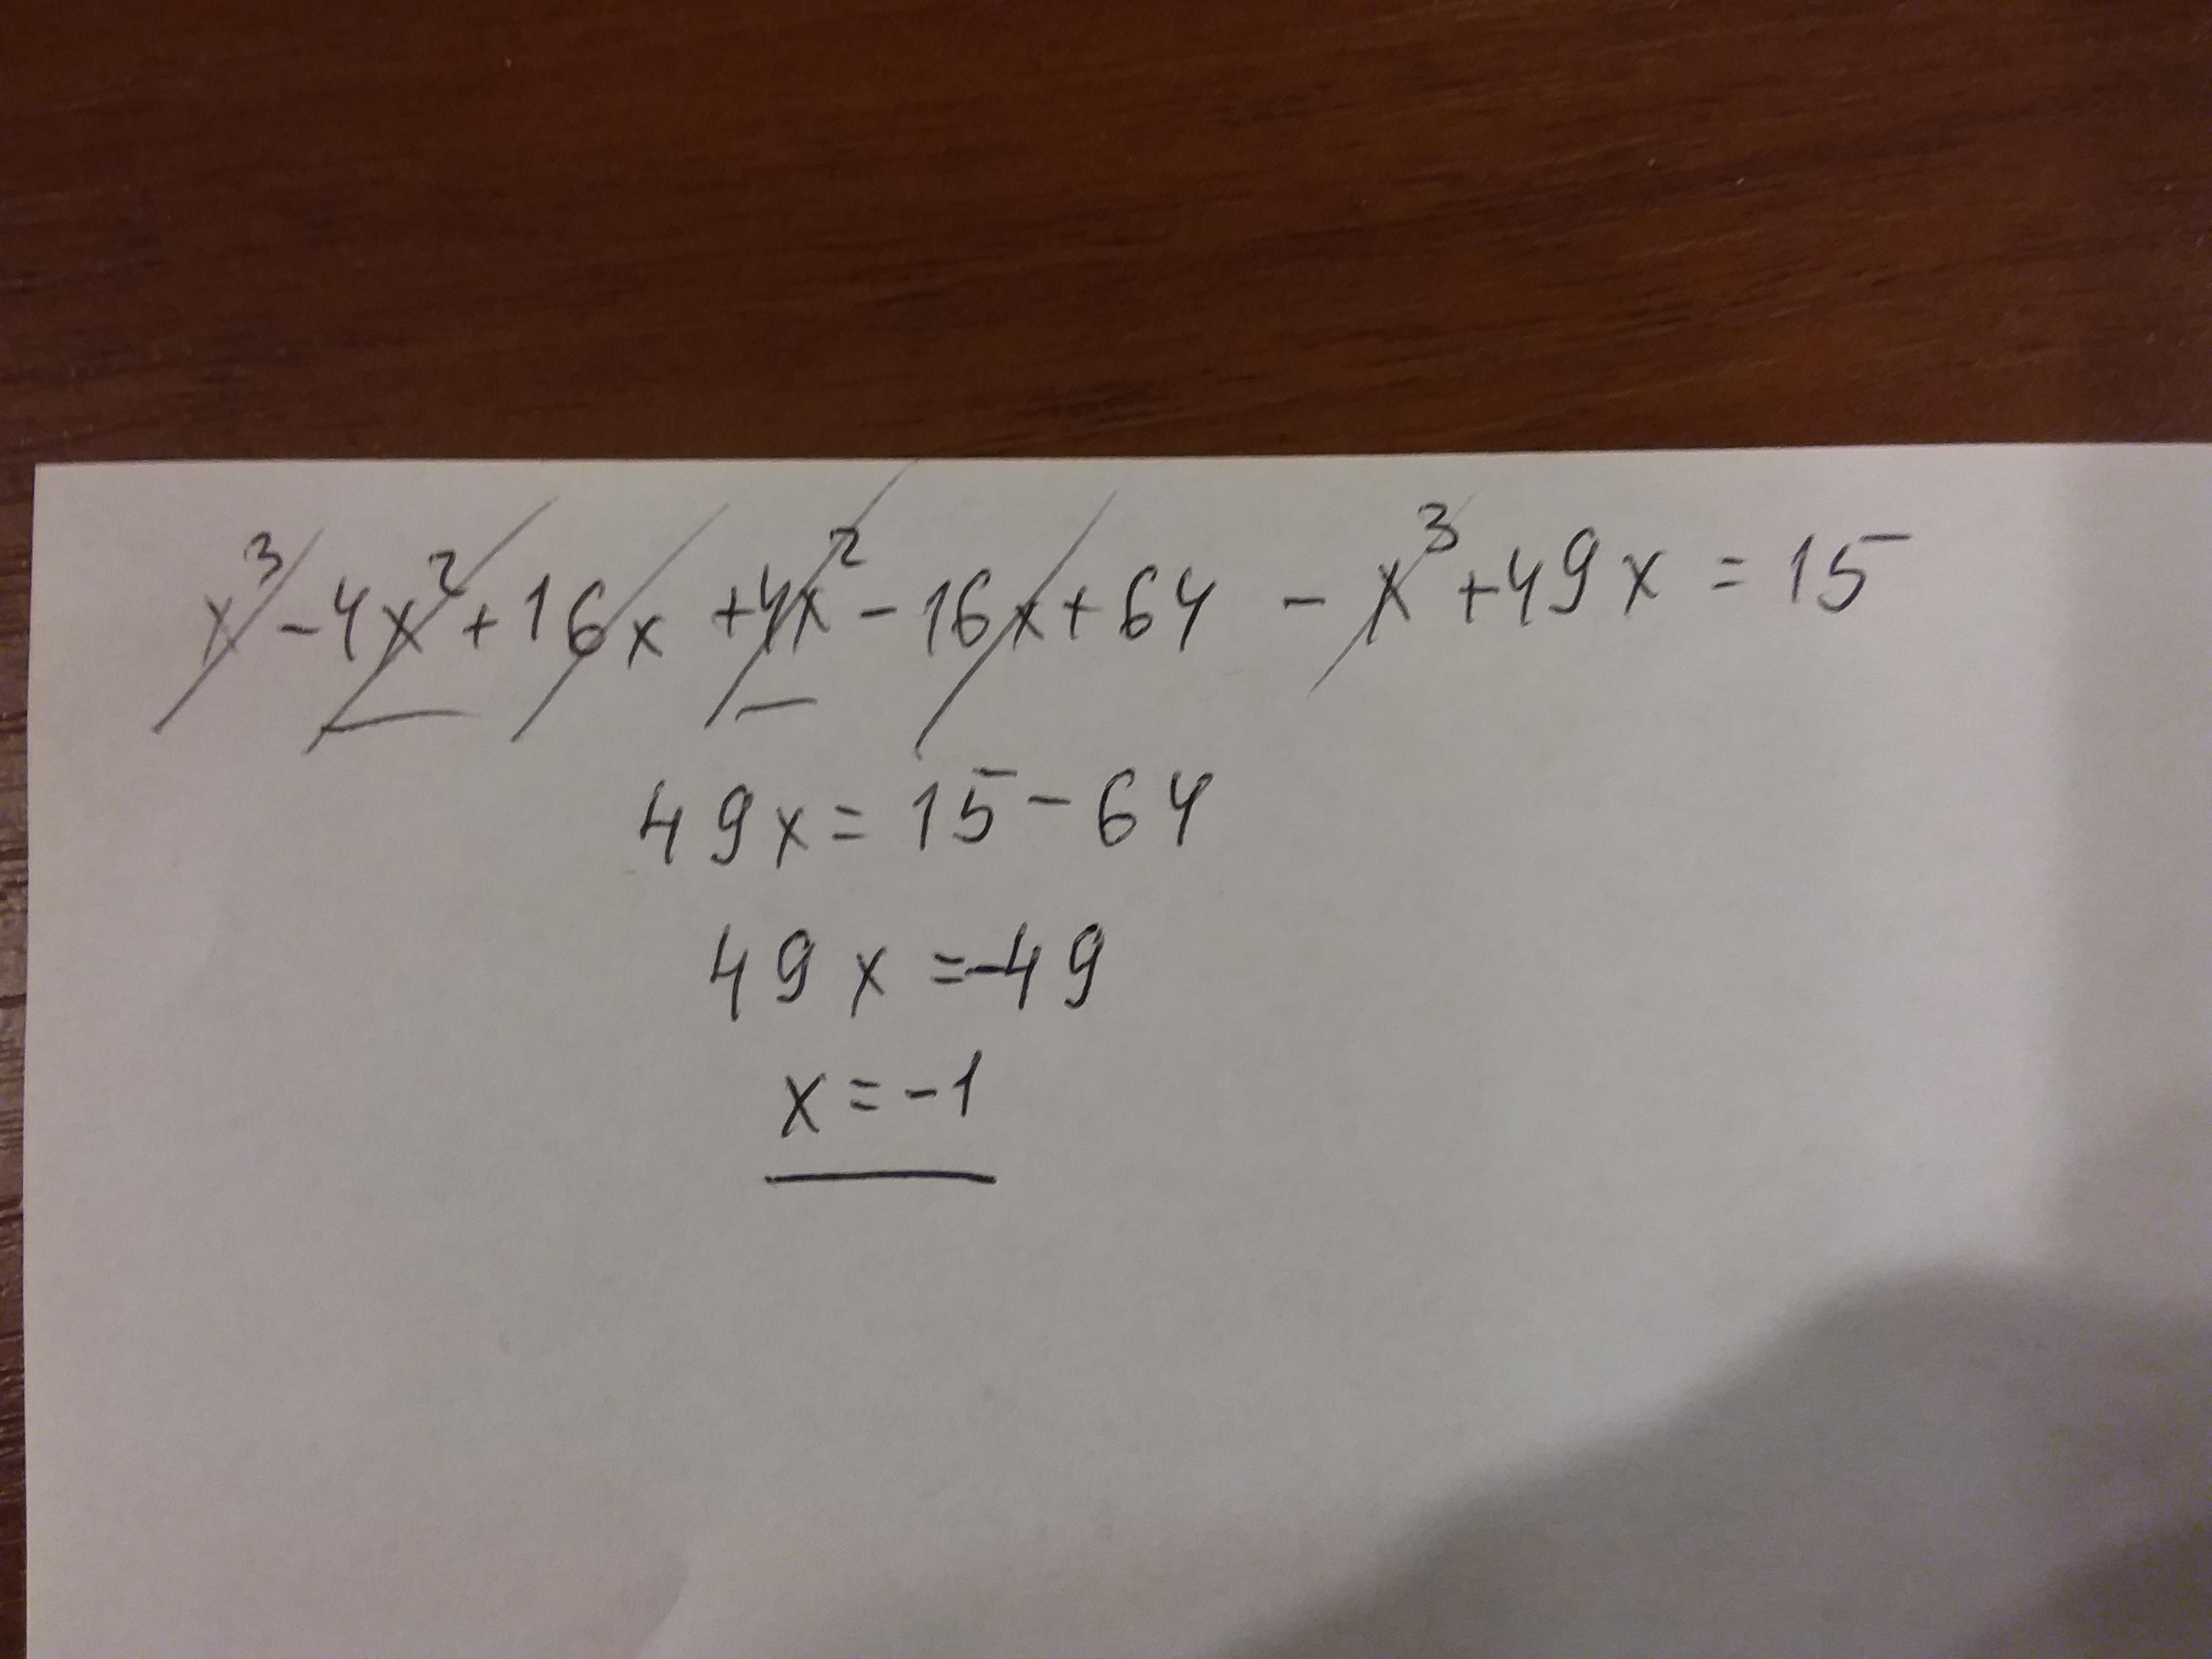 x³ - 4x² + 16x + 4x² - 16x + 64 - x³ + 49x = 15
49x = 15 - 64
49x = -49
x = -1